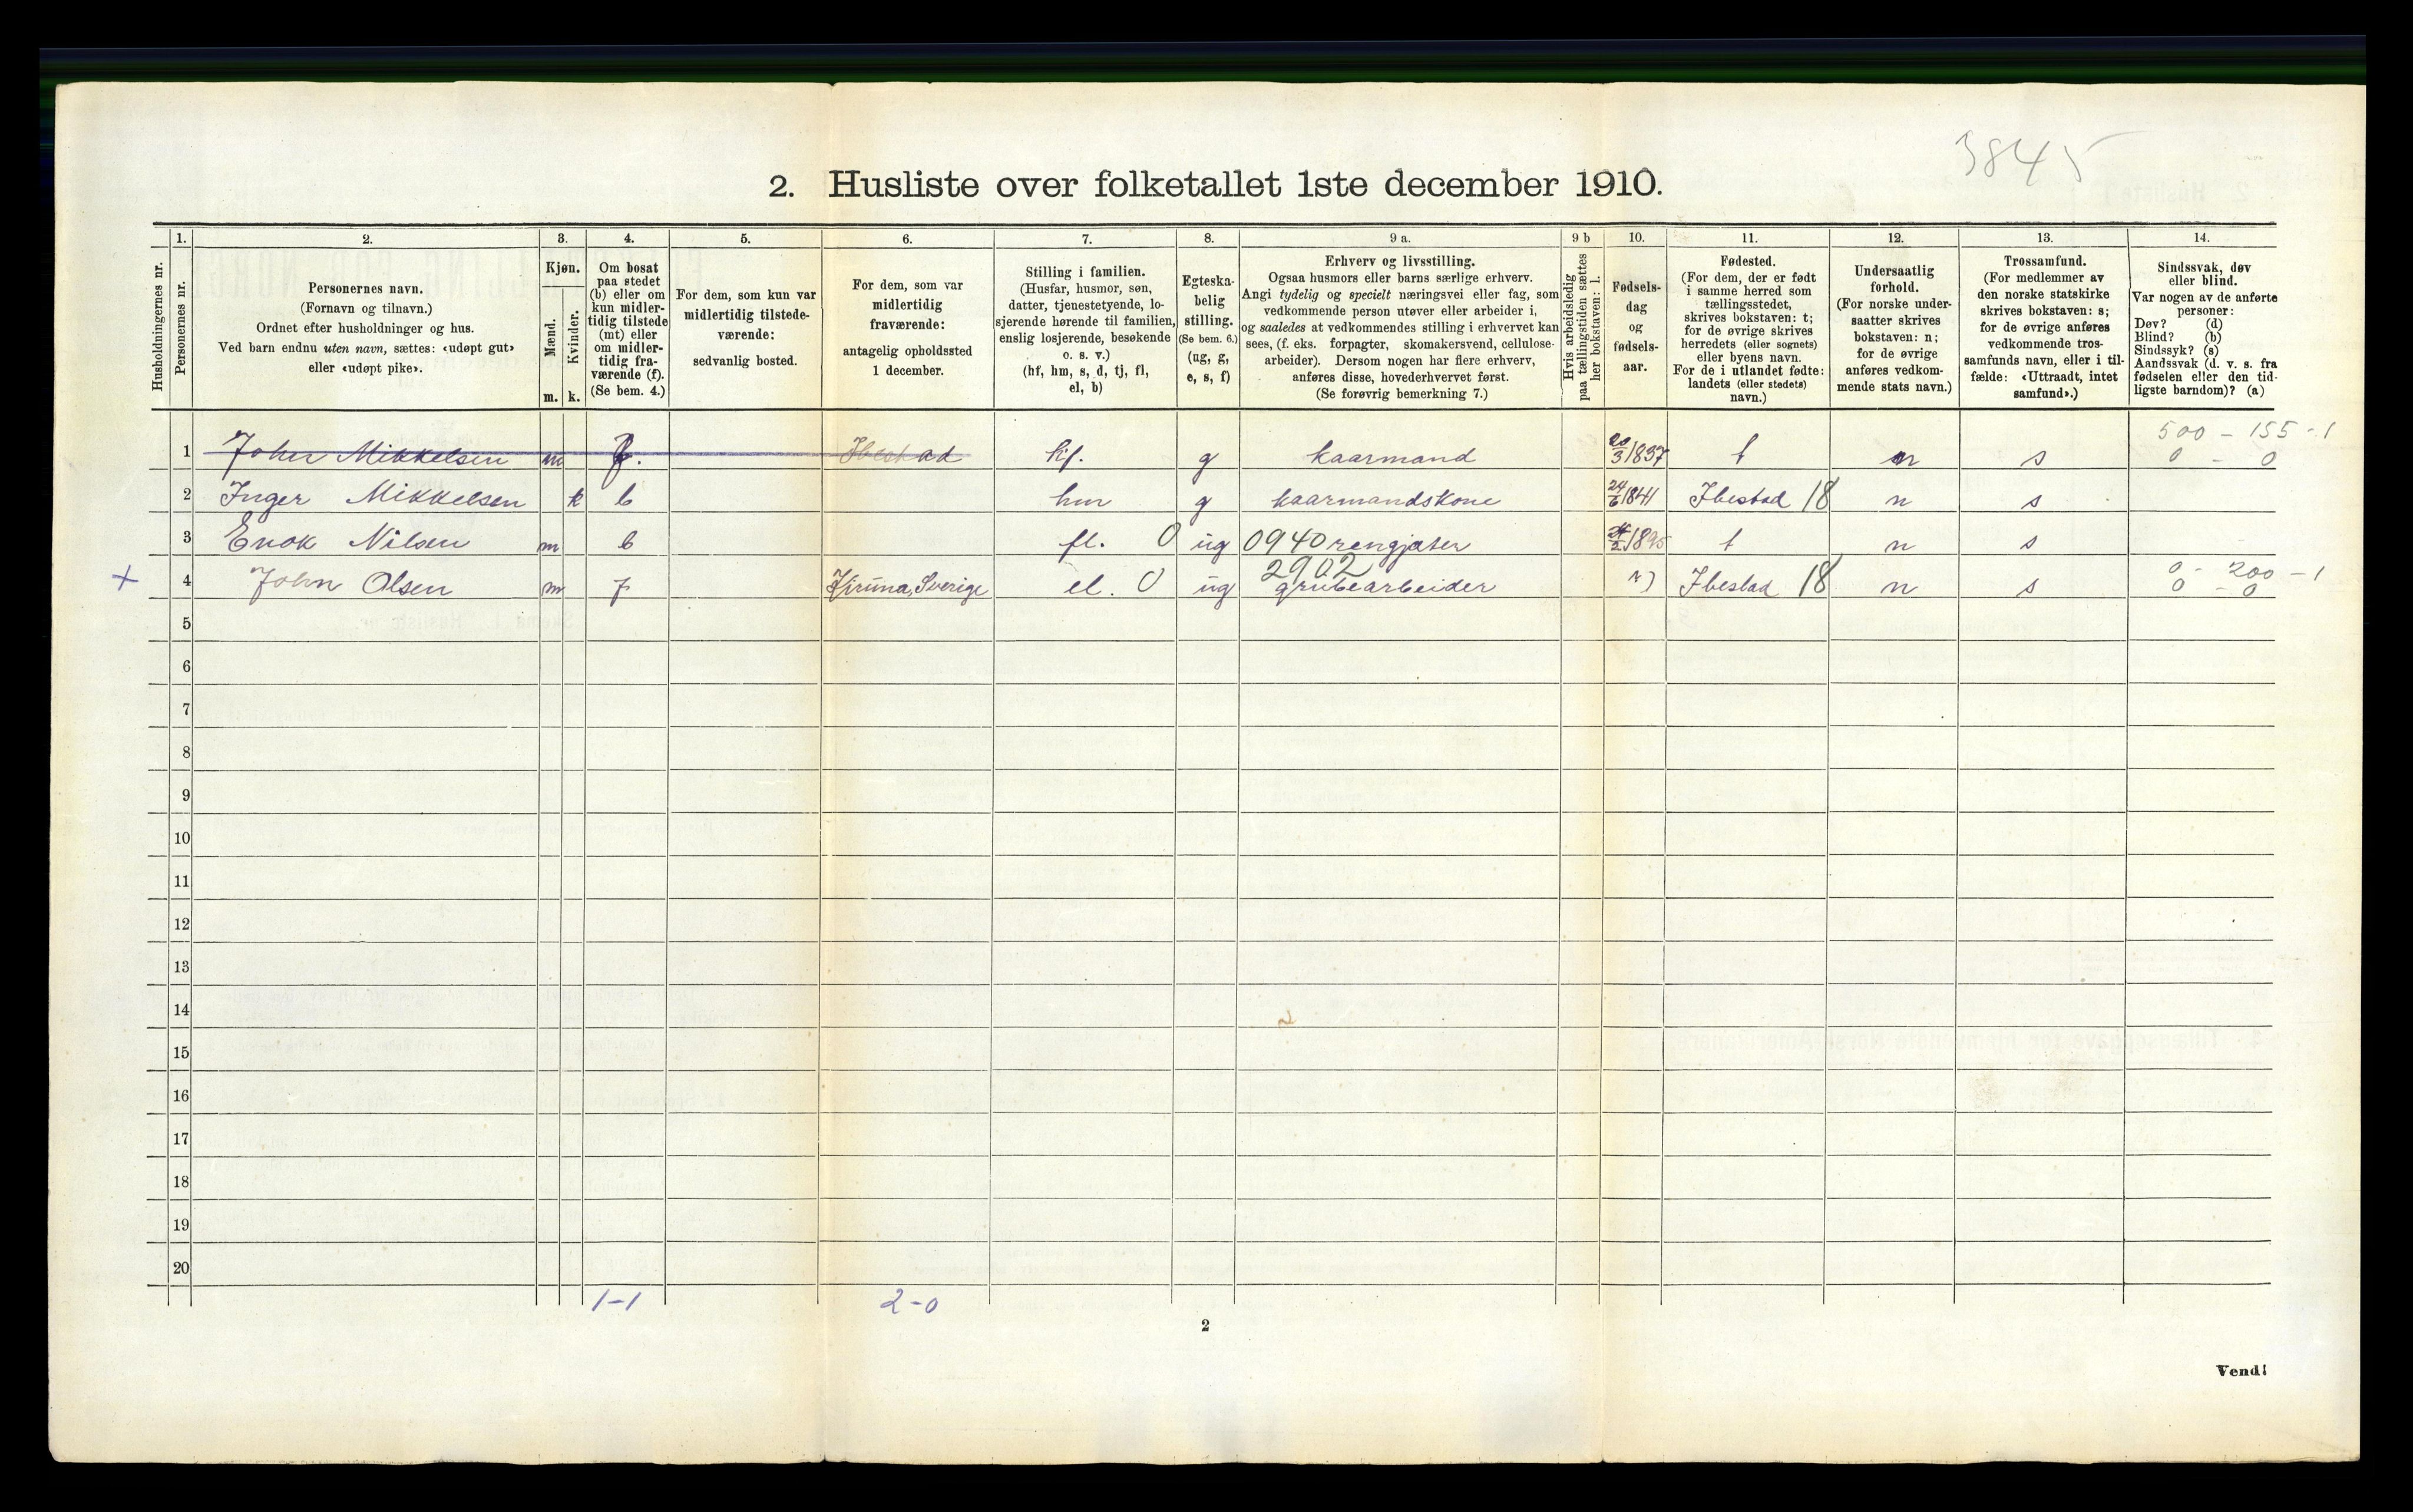 3845
2. Husliste over folketallet 1ste december 1910.
Husholdningernes nr.
1.
Personernes nr.
2.
Personernes navn.
(Fornavn og tilnavn.)
Ordnet efter husholdninger og hus.
Ved barn endnu uten navn, sættes: «udøpt gut»
eller «udøpt pike».
3.
Kjøn.
Mænd.
Kvinder.
m. k.
4.
Om bosat
paa stedet
(b) eller om
kun midler-
tidig tilstede
(mt) eller
om midler-
tidig fra-
værende (f).
(Se bem. 4.)
5.
For dem, som kun var
midlertidig tilstede-
værende:
sedvanlig bosted.
6.
For dem, som var
midlertidig
fraværende:
antagelig opholdssted
1 december.
7.
Stilling i familien.
(Husfar, husmor, søn,
datter, tjenestetyende, lo-
sjerende hørende til familien,
enslig losjerende, besøkende
o. s. v.)
(hf, hm, s, d, tj, fl,
el, b)
8.
Egteska-
belig
stilling.
(Se bem. 6.)
(ug, g,
e, s, f)
9 a.
Erhverv og livsstilling.
Ogsaa husmors eller barns særlige erhverv.
Angi tydelig og specielt næringsvei eller fag, som
vedkommende person utøver eller arbeider i,
og saaledes at vedkommendes stilling i erhvervet kan
sees, (f. eks. forpagter, skomakersvend, cellulose-
arbeider). Dersom nogen har flere erhverv,
anføres disse, hovederhvervet først.
(Se forøvrig bemerkning 7.)
9 b
Hvis arbeidsledig
paa tællingstiden sættes
her bokstaven: l.
10.
Fødsels-
dag
og
fødsels-
aar.
11.
Fødested.
(For dem, der er født
i samme herred som
tællingsstedet,
skrives bokstaven: t;
for de øvrige skrives
herredets (eller sognets)
eller byens navn.
For de i utlandet fødte:
landets (eller stedets)
navn.)
12.
Undersaatlig
forhold.
(For norske under-
saatter skrives
bokstaven: n;
for de øvrige
anføres vedkom-
mende stats navn.)
13.
Trossamfund.
(For medlemmer av
den norske statskirke
skrives bokstaven: s;
for de øvrige anføres
vedkommende tros-
samfunds navn, eller i til-
fælde: «Uttraadt, intet
samfund».)
14.
Sindssvak, døv
eller blind.
Var nogen av de anførte
personer:
Døv? (d)
Blind? (b)
Sindssyk? (s)
Aandssvak (d. v. s. fra
fødselen eller den tid-
ligste barndom)? (a)
500 - 155 - 1
1 John Mikkelsen m f. Ibestad hf. g kaarmand 20/3 1837 t n s 0 - 0
2 Inger Mikkelsen k b hm g kaarmandskone 24/6 1841 Ibestad 18 n s
3 Enok Nilsen m b fl. 0 ug 0940 rengjæter 1895 t n s
2902
0 - 200 - 1
+ 4 John Olsen m f Kiruna, Sverige el. 0 ug grubearbeider Ibestad 18 n s 0 - 0
5
6
7
8
9
10
11
12
13
14
15
16
17
18
19
20
1-1 2-0
2
Vend!